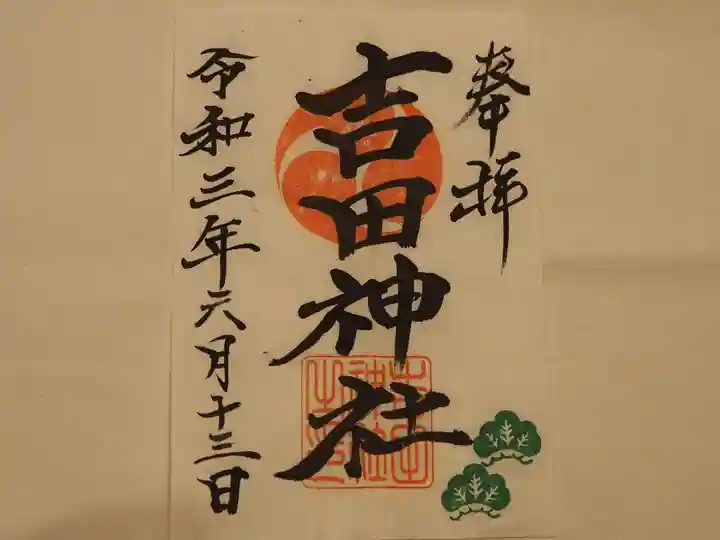 奉拝
吉田神社
令和三年六月十三日